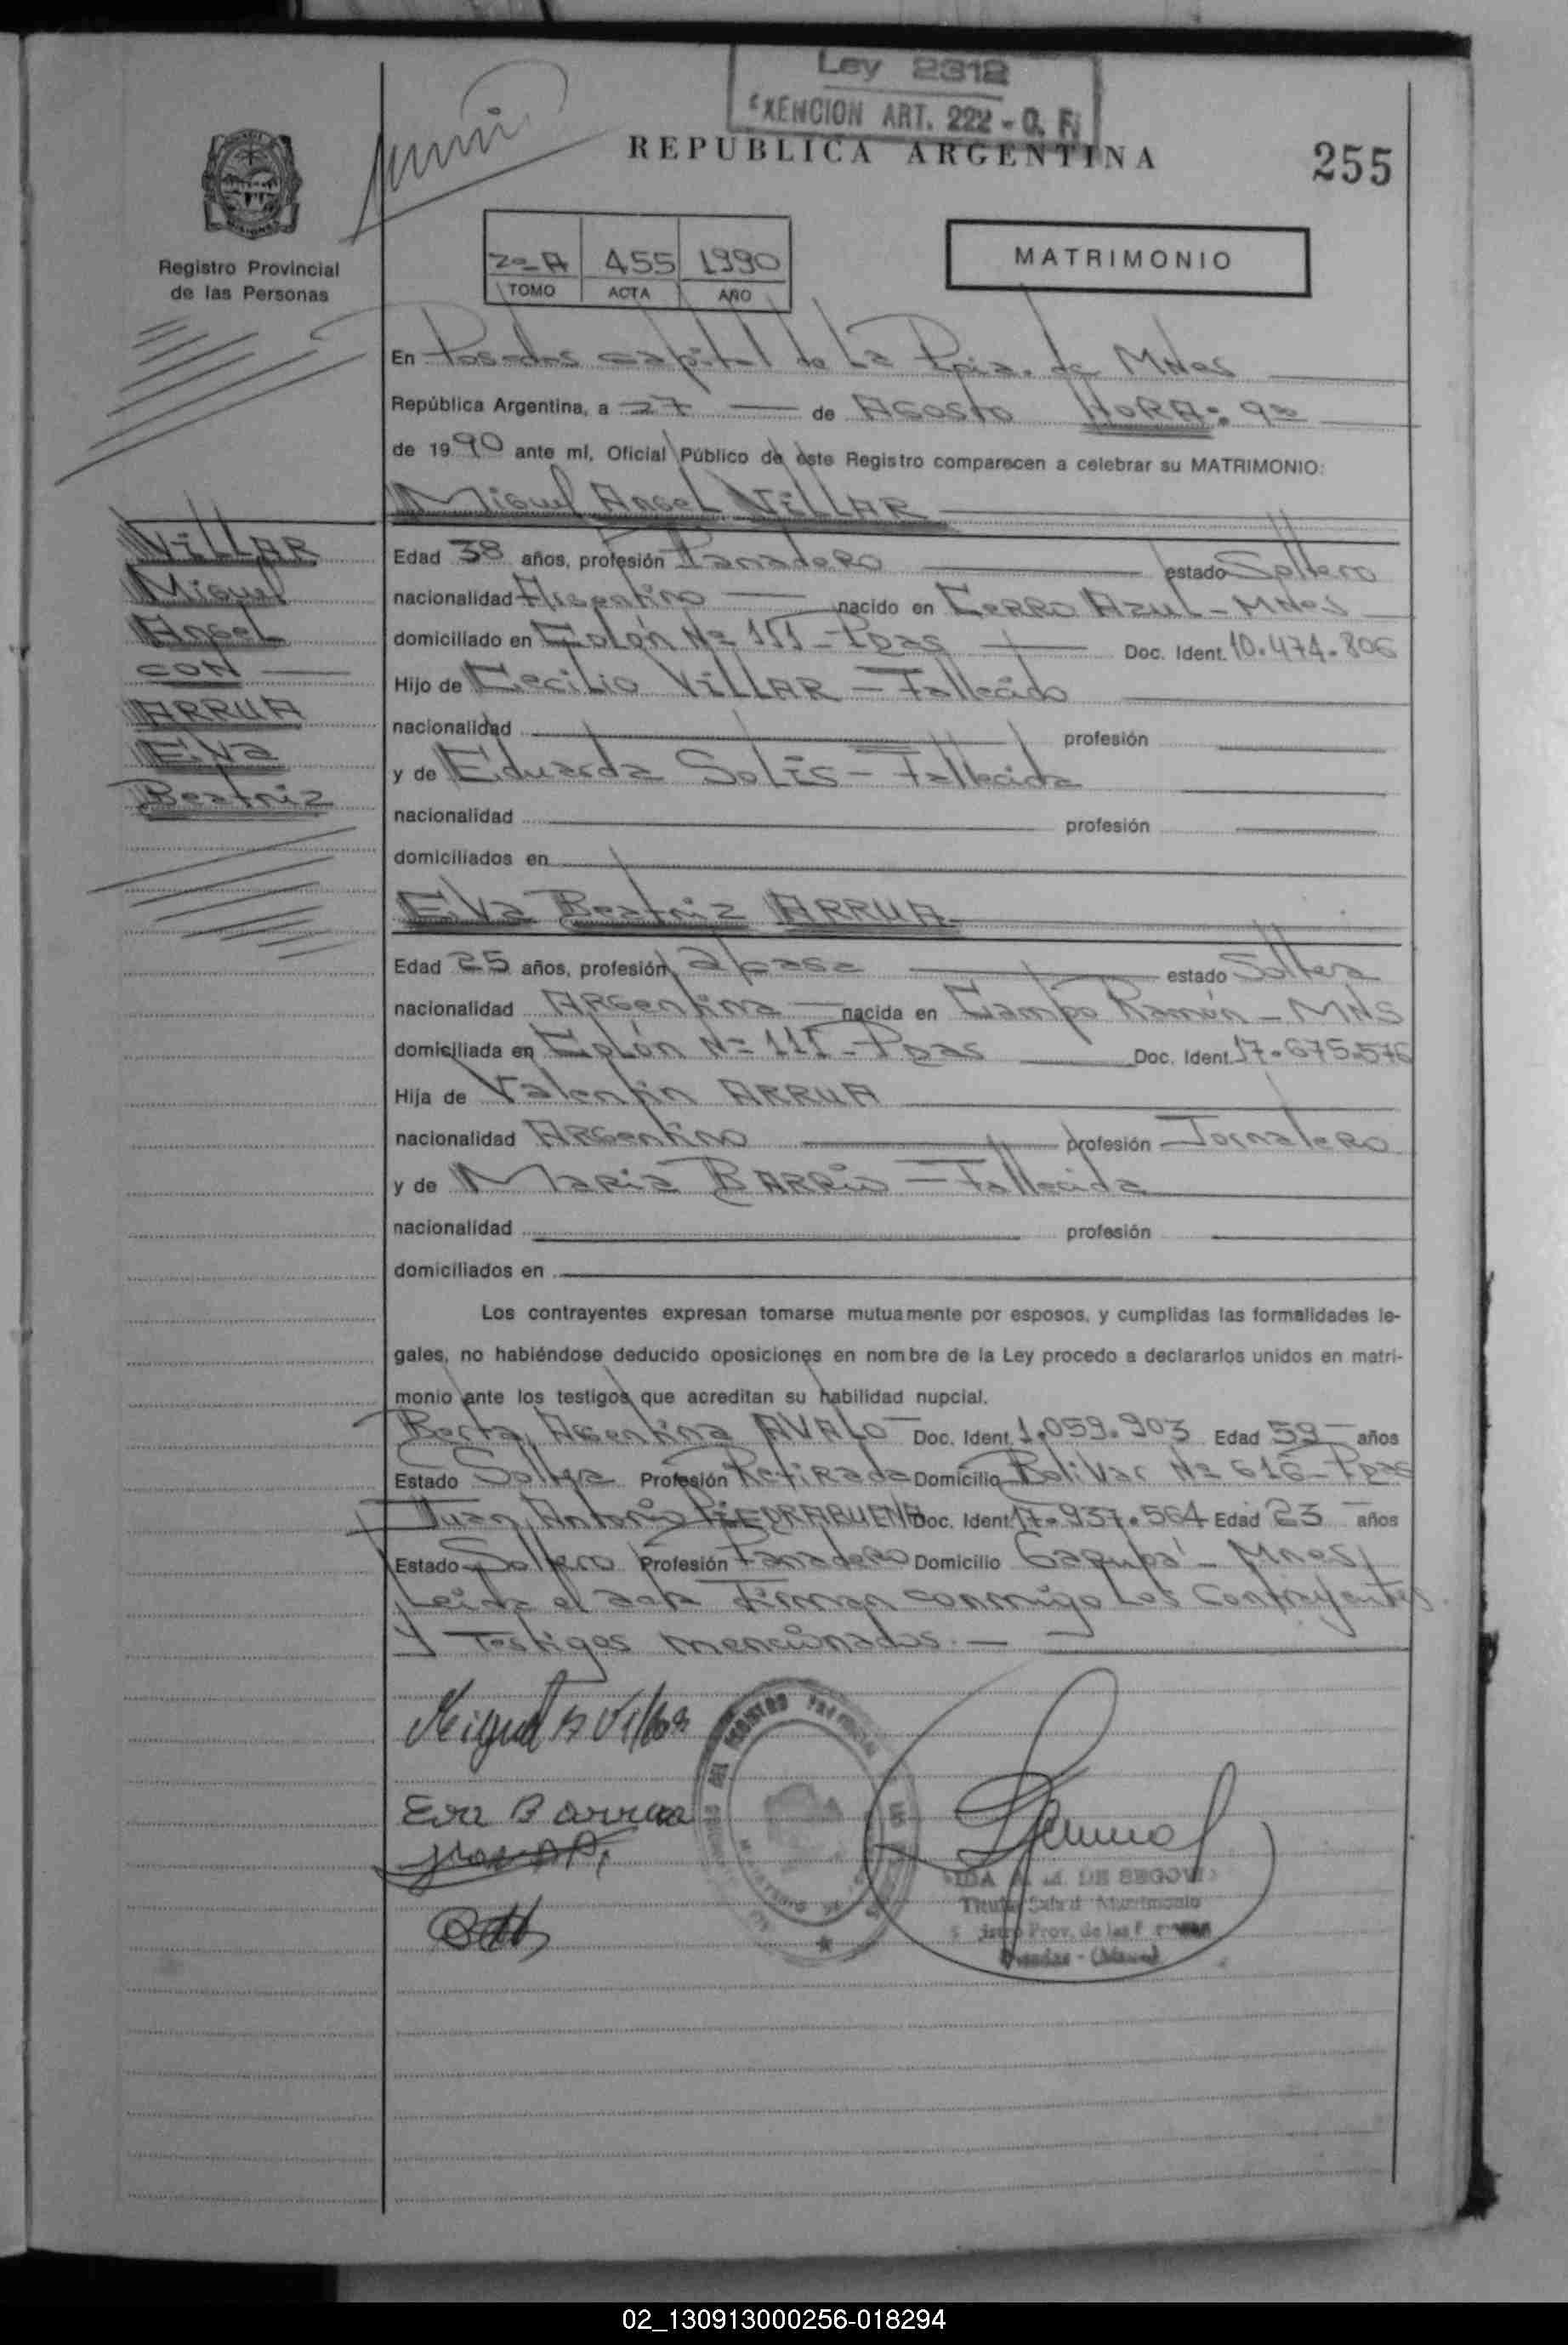 Ley 2312
EXENCION ART. 222 - C. F.
REPUBLICA ARGENTINA
255
Registro Provincial
de las Personas
2º-A 455 1990
TOMO ACTA AÑO
MATRIMONIO
En Posadas capital de La Pcia. de Mnes
República Argentina, a 27 de Agosto HORA: 9
de 1990 ante mí, Oficial Público de este Registro comparecen a celebrar su MATRIMONIO:
Miguel Angel VILLAR
VILLAR
Miguel
Angel
CON
ARRUA
Elva
Beatriz
Edad 38 años, profesión Panadero estado Soltero
nacionalidad Argentino nacido en Cerro Azul - Mnes
domiciliado en Colón Nº 111 - Pdas Doc. Ident. 10.474.806
Hijo de Cecilio VILLAR - Fallecido
nacionalidad profesión
y de Eduarda Solis - Fallecida
nacionalidad profesión
domiciliados en
Elva Beatriz ARRUA
Edad 25 años, profesión a/casa estado Soltera
nacionalidad Argentina nacida en Campo Ramón - Mns
domiciliada en Colón Nº 111 - Pdas Doc. Ident. 17.675.576
Hija de Valentin ARRUA
nacionalidad Argentino profesión Jornalero
y de Maria BARRIO - Fallecida
nacionalidad profesión
domiciliados en
Los contrayentes expresan tomarse mutuamente por esposos, y cumplidas las formalidades le-
gales, no habiéndose deducido oposiciones en nombre de la Ley procedo a declararlos unidos en matri-
monio ante los testigos que acreditan su habilidad nupcial.
Berta Argentina AVALO Doc. Ident. 1.059.903 Edad 59 años
Estado Soltera Profesión Retirada Domicilio Bolivar Nº 616 - Pdas
Juan Antonio PIEDRABUENA Doc. Ident. 17.937.564 Edad 23 años
Estado Soltero Profesión Panadero Domicilio Garupá - Mnes
Leida el acta Firman conmigo Los Contrayentes
y Testigos mencionados.
Miguel A Villar
Eva B arrua
DE SEGOVI
Prov. de las
02_130913000256-018294